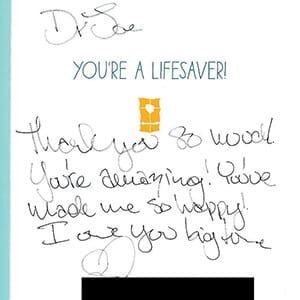 Dr Joe
YOU'RE A LIFESAVER!
Thank you so much!
You're amazing! You've
made me so happy!
I owe you big time